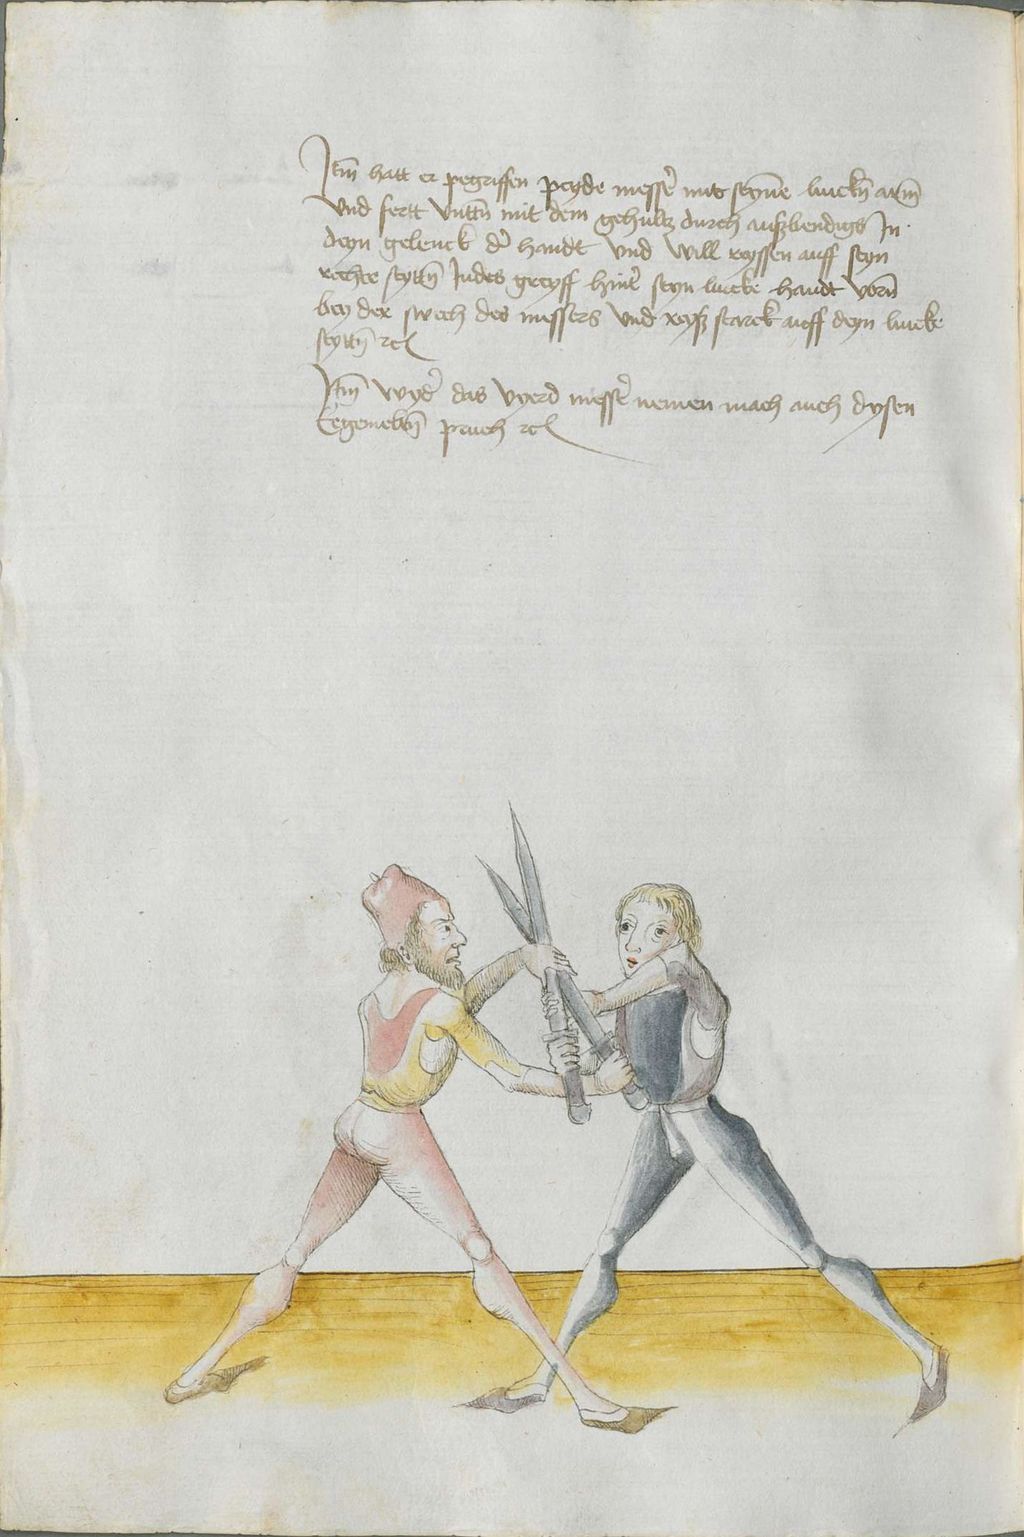 Itm̄ hatt er pegriffen peyde messer̄ mit seyne͂ lincken̄ arm̄
Vnd fertt vntten̄ mit dem gehultz durch auszbendigs In
deyn gelenck der̄ handt Vnd Will reyssen auff seyn
rechte seytten̄ Indes greyff hinter̄ seyn lincke handt vorn̄
bey der swech des messers Vnd reysz starck auff deyn lincke
seytten̄ rcl
Itm̄ Wyder̄ das Vyerd messer̄ nemen mach auch dysen
pruch rcl